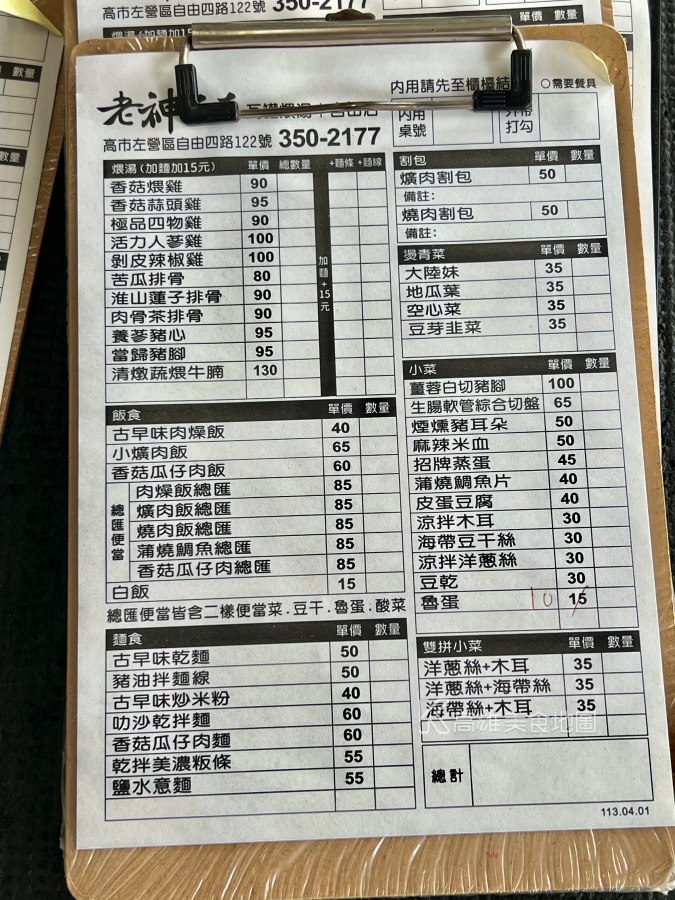 高市左營區自由四路122號 350-2177
單價 數量
數量
數量
數量
內用請先至櫃檯結
○需要餐具
老神
內用
桌號
打勾
高市左營區自由四路122號 350-2177
煨湯(加麵加15元) 單價 總數量 +麵條 +麵線
香菇煨雞 90
香菇蒜頭雞 95
極品四物雞 90
活力人蔘雞 100
剝皮辣椒雞 100
苦瓜排骨 80
淮山蓮子排骨 90
肉骨茶排骨 90
養蔘豬心 95
當歸豬腳 95
清燉蔬煨牛腩 130
加麵+15元
飯食 單價 數量
古早味肉燥飯 40
小爌肉飯 65
香菇瓜仔肉飯 60
總匯便當
肉燥飯總匯 85
爌肉飯總匯 85
燒肉飯總匯 85
蒲燒鯛魚總匯 85
香菇瓜仔肉總匯 85
白飯 15
總匯便當皆含二樣便當菜.豆干.魯蛋.酸菜
麵食 單價 數量
古早味乾麵 50
豬油拌麵線 50
古早味炒米粉 40
叻沙乾拌麵 60
香菇瓜仔肉麵 60
乾拌美濃粄條 55
鹽水意麵 55
割包 單價 數量
爌肉割包 50
備註:
燒肉割包 50
備註:
燙青菜 單價 數量
大陸妹 35
地瓜葉 35
空心菜 35
豆芽韭菜 35
小菜 單價 數量
薑蓉白切豬腳 100
生腸軟管綜合切盤 65
煙燻豬耳朵 50
麻辣米血 50
招牌蒸蛋 45
蒲燒鯛魚片 40
皮蛋豆腐 40
涼拌木耳 30
海帶豆干絲 30
涼拌洋蔥絲 30
豆乾 30
魯蛋 10 15
雙拼小菜 單價 數量
洋蔥絲+木耳 35
洋蔥絲+海帶絲 35
海帶絲+木耳 35
高雄美食地圖
總計
113.04.01